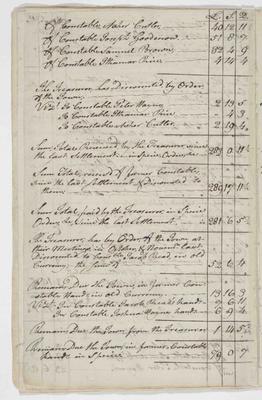 L. S. D.
Of Constable Asher Cutler 40 12 11
Of Constable Joseph Goodenow 51 8 7
Of Constable Samuel Brown 82 4 9
Of Constable Ithamar Rice 4 14 4
The Treasurer has discounted by Order
of the Town,
Viz. To Constable Peter 2 13 5
To Constable Ithamar Rice - 4 3
To Constable Asher Cutler 2 19 4
Sum Total Received by the Treasurer since
the last Settlement in Specie Orders, &c. 281 0 11
Sum Total, received of former Constables,
since the last Settlement & discounted to
them 289 17 11
Sum Total, paid by the Treasurer, in Specie
Orders, &c. since the last Settlement, is 281 6 5
The Treasurer, has by Order of the Town at
their Meetings in October & November last,
Discounted to Constable Jacob Read, in old
Currency, the Sum of 52 6 4
Remains Due the Town, in former Con-
stables Hands, in old Currency 13 16 3
Viz. In Constable Jacob Reads hands 7 6 11
In Constable Joshua Haynes hands 6 9 4
Remains Due, the Town, from the Treasurer 1 14 5
Remains Due the Town, in former Constables
hands in Specie 79 0 7